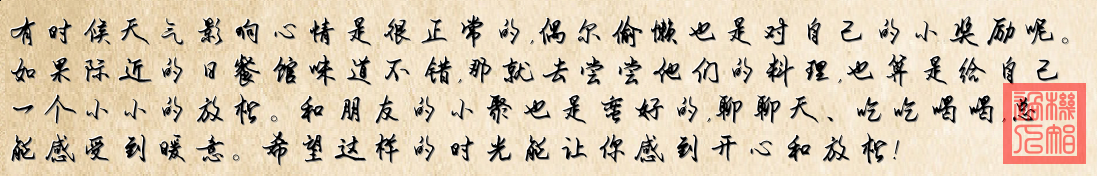 有时候天气影响心情是很正常的,偶尔偷懒也是对自己的小奖励呢。
如果附近的日餐馆味道不错,那就去尝尝他们的料理,也算是给自己
一个小小的放松。和朋友的小聚也是蛮好的,聊聊天、吃吃喝喝,总
能感受到暖意。希望这样的时光能让你感到开心和放松!